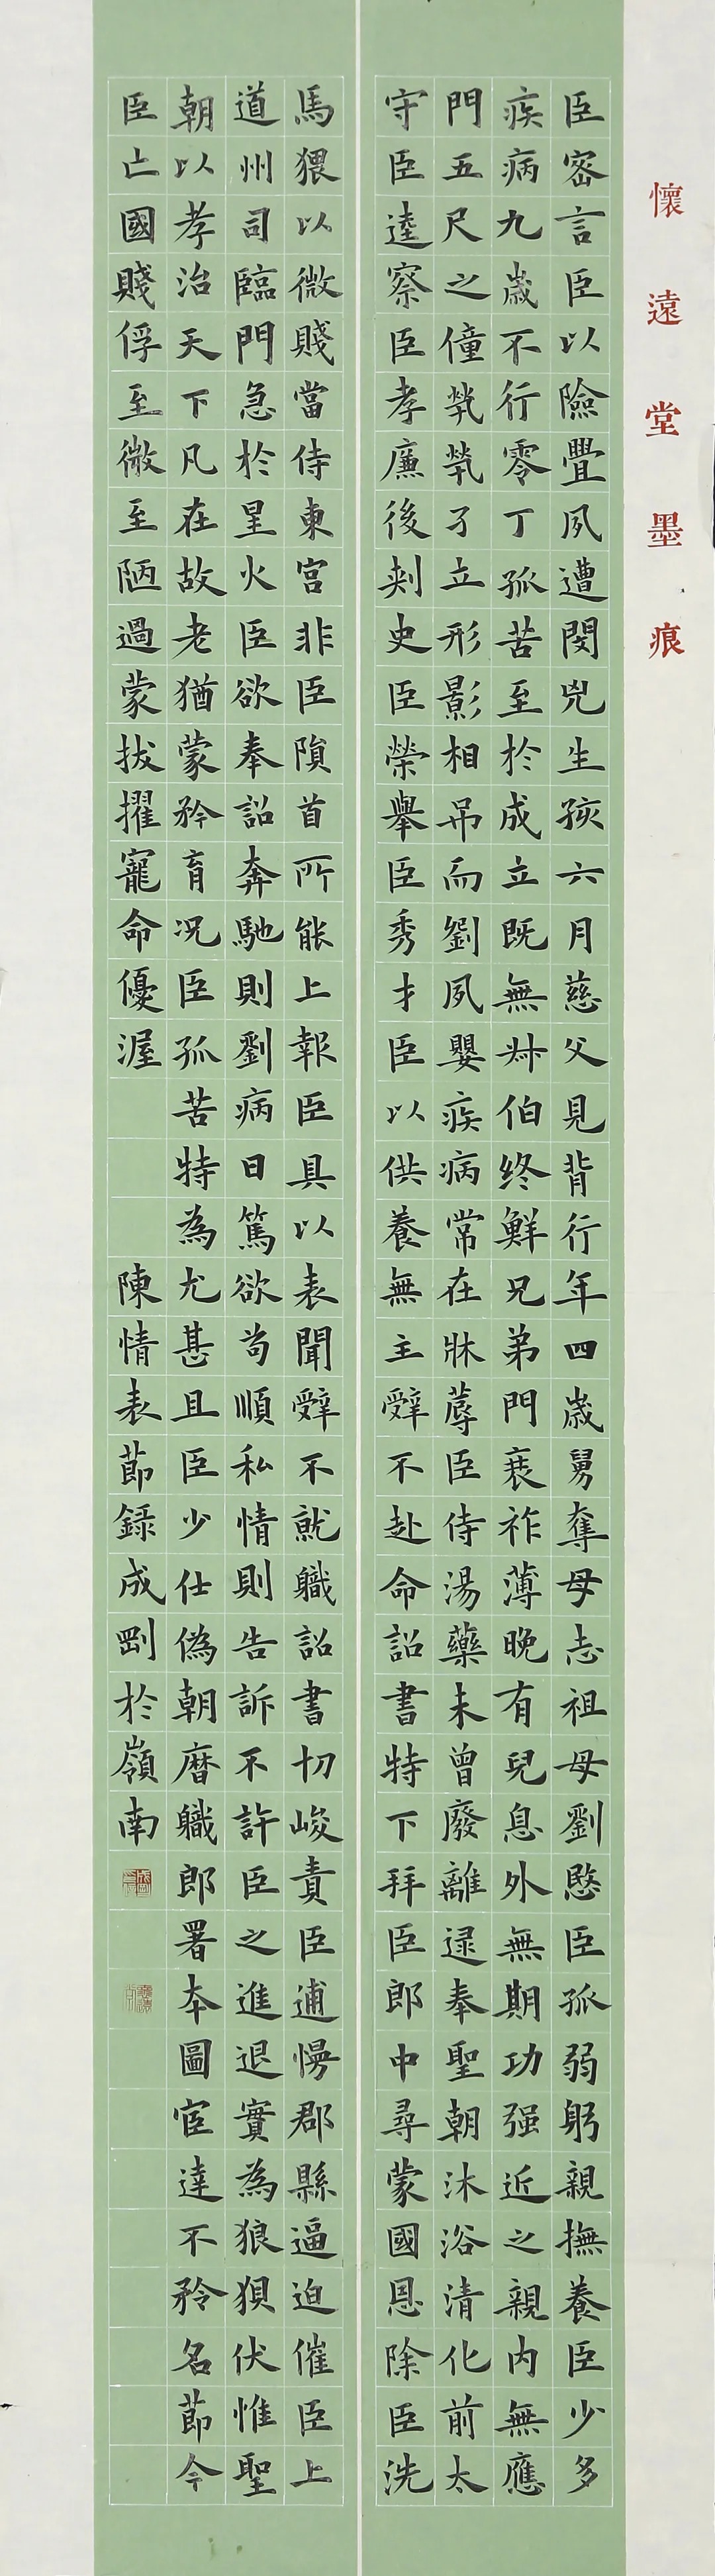 懷遠堂墨痕
臣密言臣以險舋夙遭閔兇生孩六月慈父見背行年四歲舅奪母志祖母劉愍臣孤弱躬親撫養臣少多
疾病九歲不行零丁孤苦至於成立既無叔伯終鮮兄弟門衰祚薄晚有兒息外無期功强近之親内無應
門五尺之僮煢煢孑立形影相吊而劉夙嬰疾病常在牀蓐臣侍湯藥未曾廢離逮奉聖朝沐浴清化前太
守臣逵察臣孝廉後刺史臣榮舉臣秀才臣以供養無主辭不赴命詔書特下拜臣郎中尋蒙國恩除臣洗
馬猥以微賤當侍東宫非臣隕首所能上報臣具以表聞辭不就職詔書切峻責臣逋慢郡縣逼迫催臣上
道州司臨門急於星火臣欲奉詔奔馳則劉病日篤欲苟順私情則告訴不許臣之進退實為狼狽伏惟聖
朝以孝治天下凡在故老猶蒙矜育况臣孤苦特為尤甚且臣少仕偽朝曆職郎署本圖宦達不矜名節今
臣亡國賤俘至微至陋過蒙拔擢寵命優渥 陳情表節錄成剛於嶺南